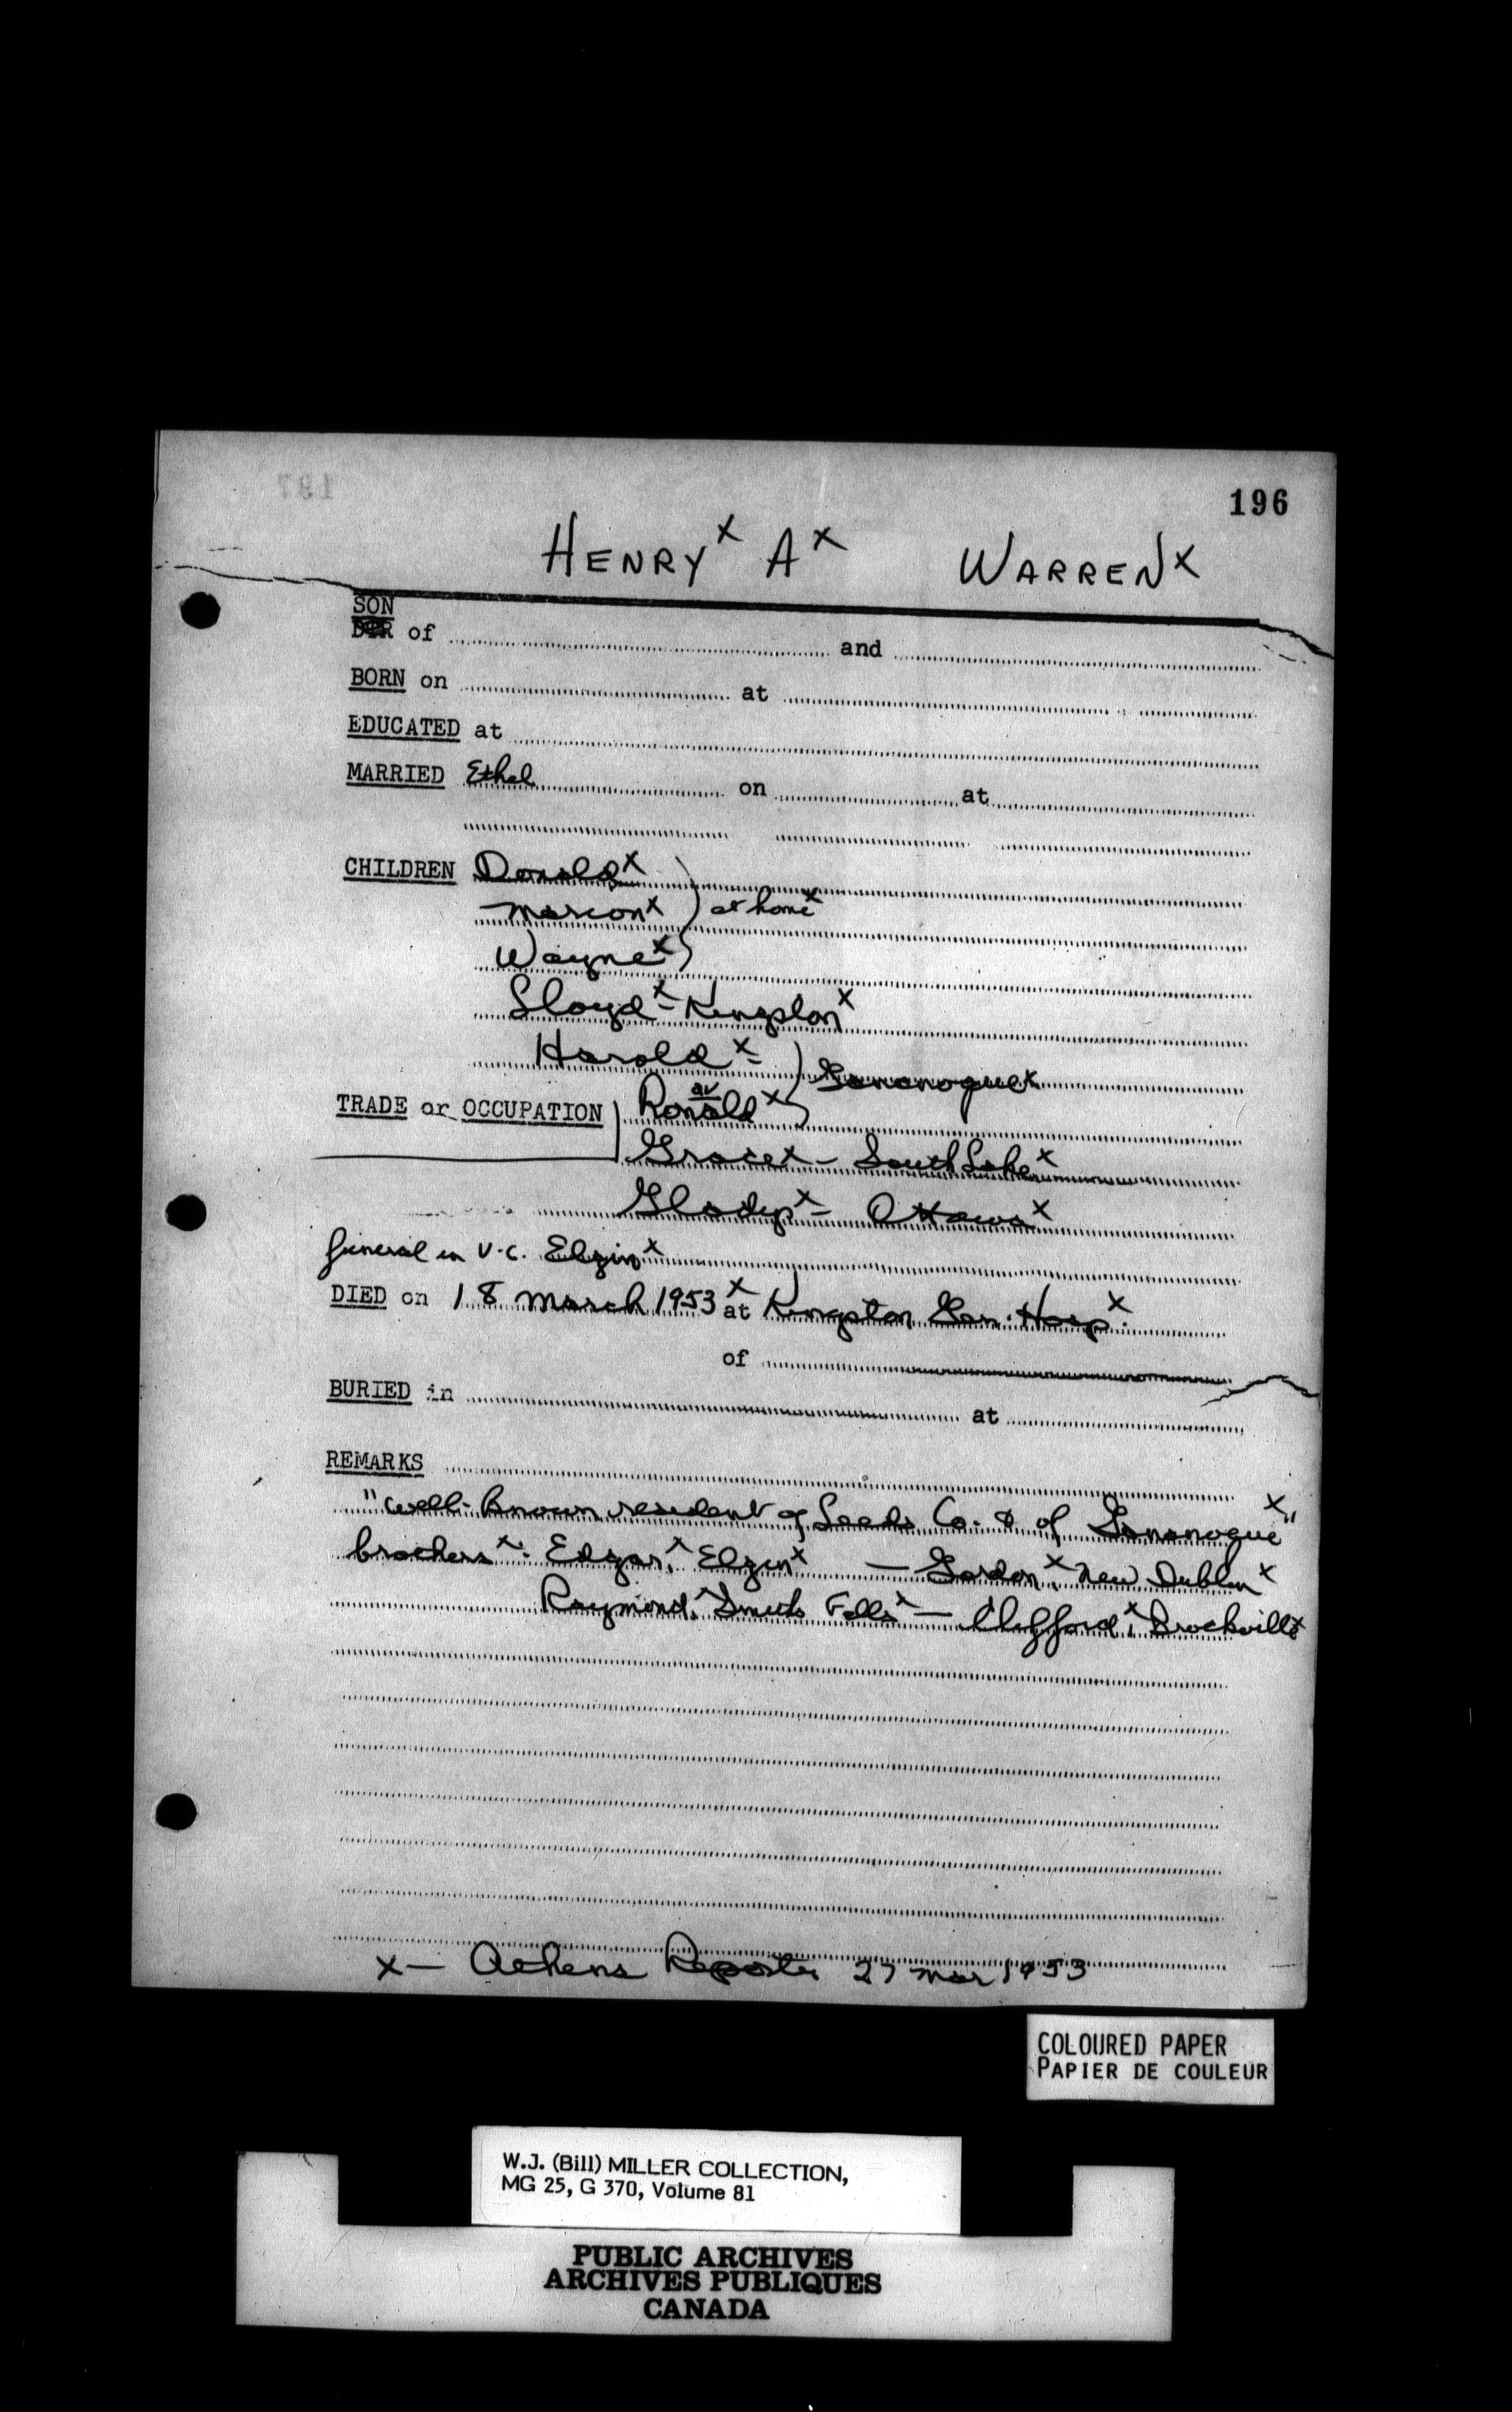 196
HENRY x A x WARREN x
SON
DTR of and
BORN on at
EDUCATED at
MARRIED Ethel on at
CHILDREN Donald x
Marion x ) at home x
Wayne x
Lloyd x - Kingston x
Harold x -
) Gananoque x
TRADE or OCCUPATION Ronald x
Grace x - South Lake x
Gladys x - Ottawa x
funeral in U.C. Elgin x
DIED on 18 March 1953 x at Kingston Gen. Hosp. x
of
BURIED in at
REMARKS
"well-known resident of Leeds Co. & of Gananoque x"
brothers x: Edgar x, Elgin x — Gordon x, New Dublin x
Raymond x, Smiths Falls x — Clifford x, Brockville x
x — Athens Reporter 27 Mar 1953
COLOURED PAPER
PAPIER DE COULEUR
W.J. (Bill) MILLER COLLECTION,
MG 25, G 370, Volume 81
PUBLIC ARCHIVES
ARCHIVES PUBLIQUES
CANADA